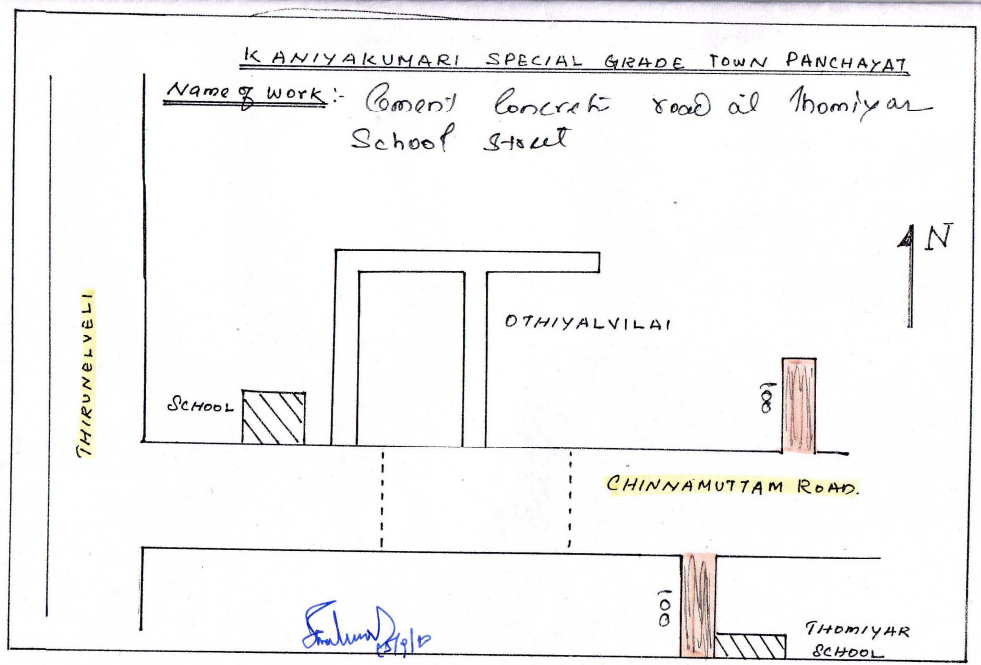 KANIYAKUMARI SPECIAL GRADE TOWN PANCHAYAT
Name of work:- Cement Concrete road at Thomiyar
School Street
N
OTHIYALVILAI
THIRUNELVELI
SCHOOL
100
CHINNAMUTTAM ROAD.
100
THOMIYAR
SCHOOL